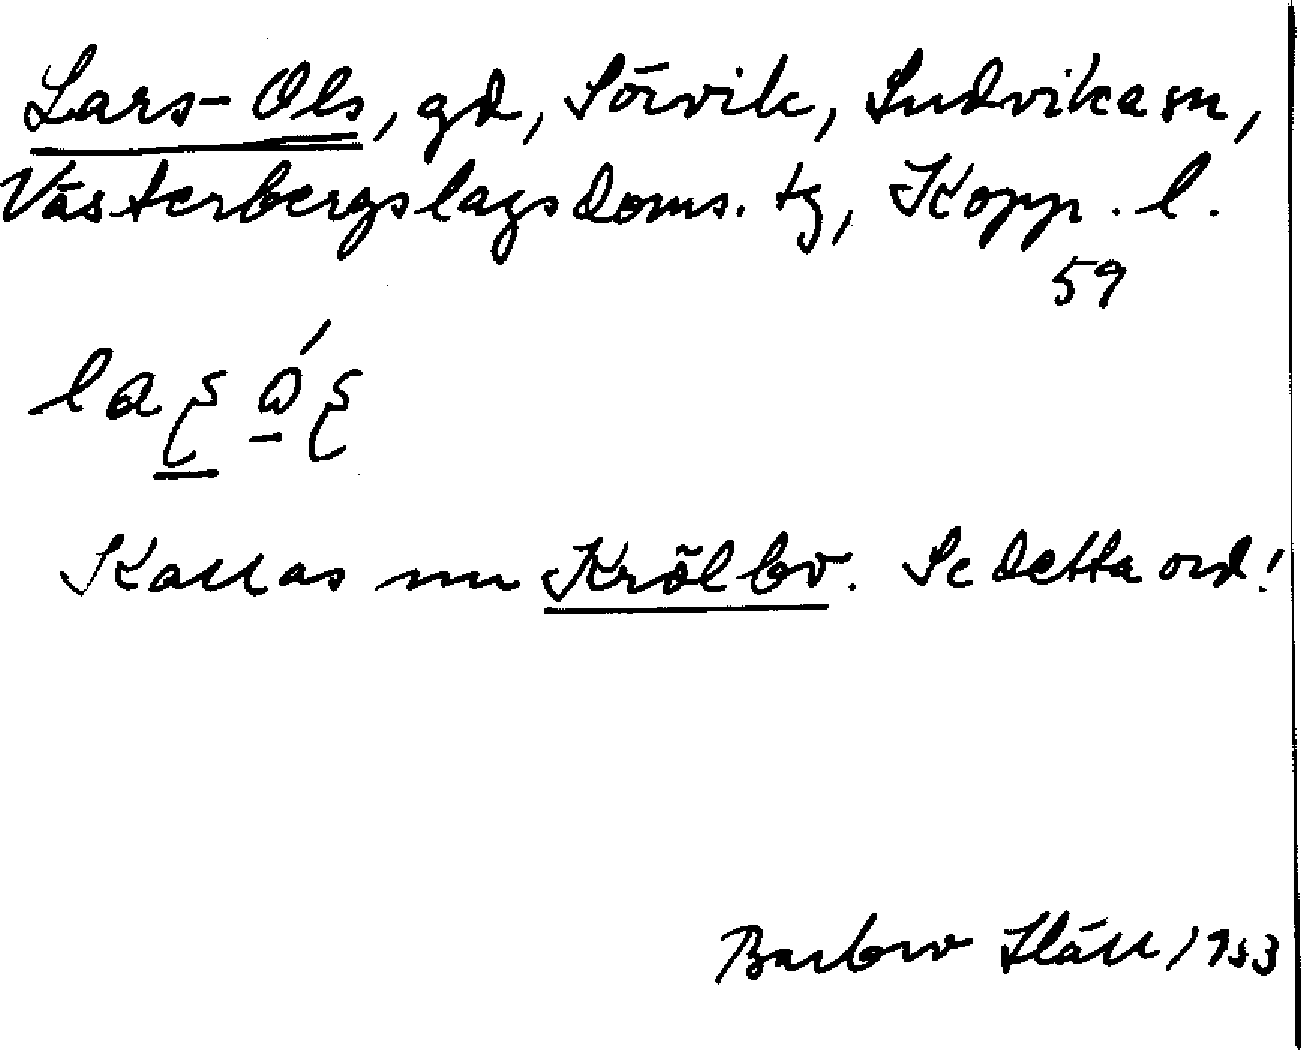 Lars-Ols, gd, Sörvik, Ludvika sn,
Västerbergslags doms. tg, Kopp. l.
59
Kallas nu Krölbo. Se detta ord!
Barbro Häll 1953